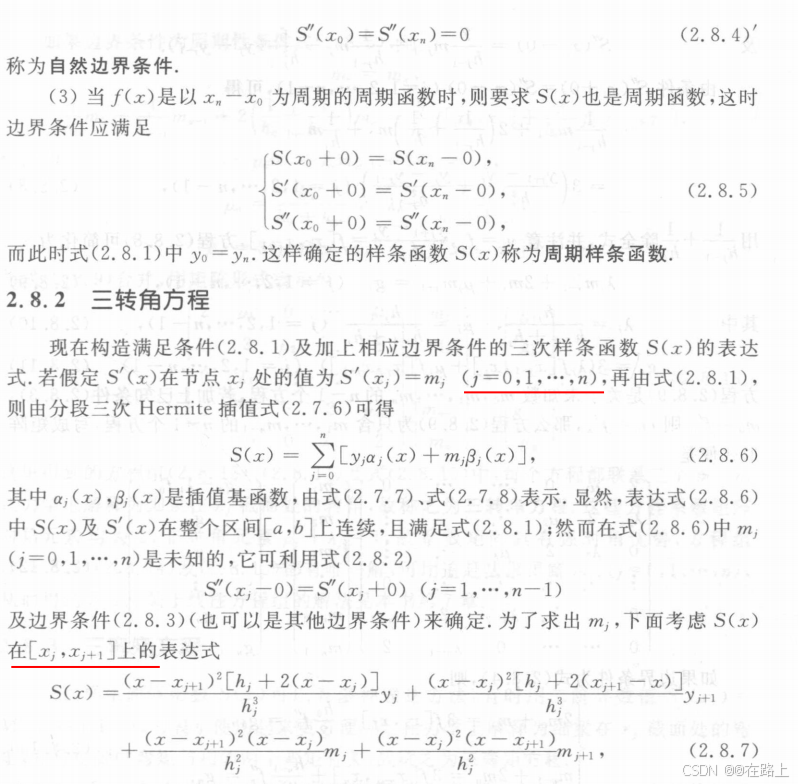 S″(x₀)=S″(xₙ)=0 (2.8.4)′
称为自然边界条件.
(3) 当 f(x)是以 xₙ−x₀ 为周期的周期函数时,则要求 S(x)也是周期函数,这时
边界条件应满足
S(x₀+0) = S(xₙ−0),
S′(x₀+0) = S′(xₙ−0), (2.8.5)
S″(x₀+0) = S″(xₙ−0),
而此时式(2.8.1)中 y₀=yₙ. 这样确定的样条函数 S(x)称为周期样条函数.
2.8.2 三转角方程
现在构造满足条件(2.8.1)及加上相应边界条件的三次样条函数 S(x)的表达
式. 若假定 S′(x)在节点 xⱼ 处的值为 S′(xⱼ)=mⱼ (j=0,1,⋯,n),再由式(2.8.1),
则由分段三次 Hermite 插值式(2.7.6)可得
S(x) = ∑ⱼ₌₀ⁿ[yⱼαⱼ(x)+mⱼβⱼ(x)], (2.8.6)
其中 αⱼ(x),βⱼ(x)是插值基函数,由式(2.7.7)、式(2.7.8)表示. 显然,表达式(2.8.6)
中 S(x)及 S′(x)在整个区间[a,b]上连续,且满足式(2.8.1);然而在式(2.8.6)中 mⱼ
(j=0,1,⋯,n)是未知的,它可利用式(2.8.2)
S″(xⱼ−0)=S″(xⱼ+0) (j=1,⋯,n−1)
及边界条件(2.8.3)(也可以是其他边界条件)来确定. 为了求出 mⱼ,下面考虑 S(x)
在[xⱼ,xⱼ₊₁]上的表达式
S(x) = (x−xⱼ₊₁)²[hⱼ+2(x−xⱼ)]/hⱼ³ yⱼ + (x−xⱼ)²[hⱼ+2(xⱼ₊₁−x)]/hⱼ³ yⱼ₊₁
+ (x−xⱼ₊₁)²(x−xⱼ)/hⱼ² mⱼ + (x−xⱼ)²(x−xⱼ₊₁)/hⱼ² mⱼ₊₁, (2.8.7)
CSDN @@在路上